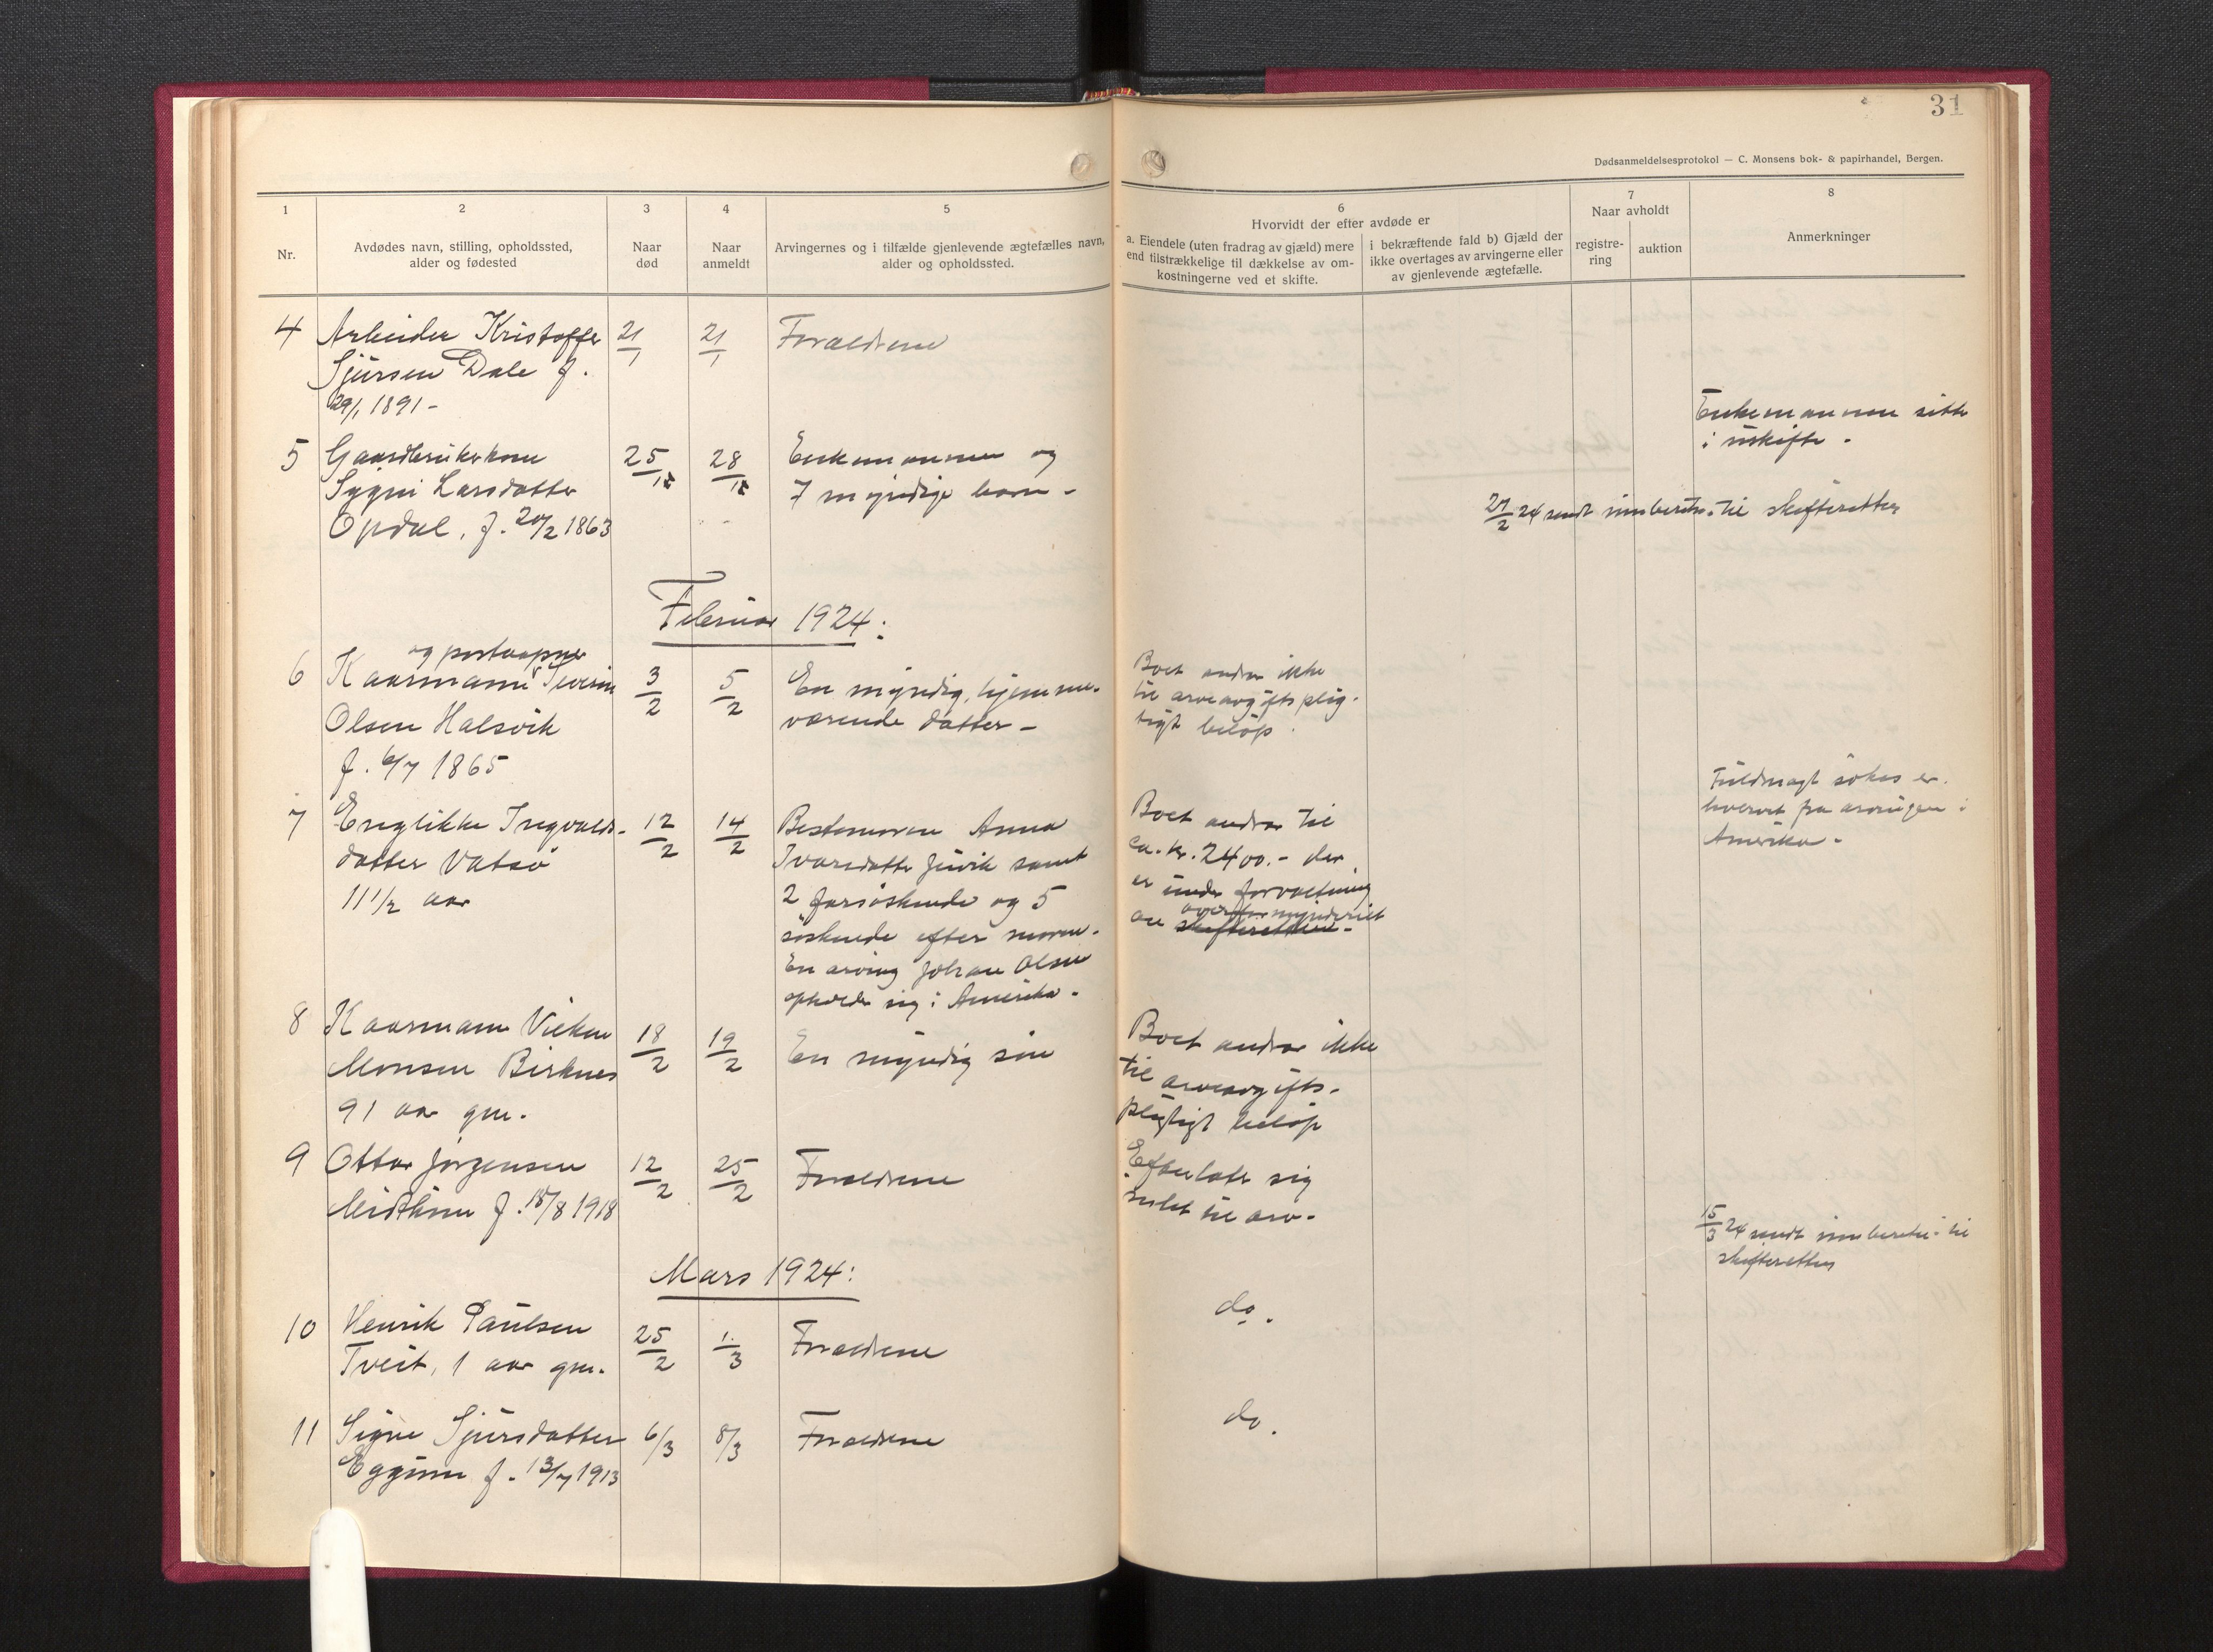 31
Dødsanmeldelsesprotokol — C. Monsens bok- & papirhandel, Bergen.
1
Nr.
2
Avdødes navn, stilling, opholdssted,
alder og fødested
3
Naar
død
4
Naar
anmeldt
5
Arvingernes og i tilfælde gjenlevende ægtefælles navn,
alder og opholdssted.
6
Hvorvidt der efter avdøde er
a. Eiendele (uten fradrag av gjæld) mere
end tilstrækkelige til dækkelse av om-
kostningerne ved et skifte.
i bekræftende fald b) Gjæld der
ikke overtages av arvingerne eller
av gjenlevende ægtefælle.
7
Naar avholdt
registre-
ring
auktion
8
Anmerkninger
4
Arbeider Kristoffer
Sjursen Dale f.
29/1 1891 -
21/1
21/1
Forældrene
5
Gaardbrukerkone
Sygni Larsdatter
Opdal, f. 1863
25/1
28/1
Enkemannen og
7 myndige barn -
Enkemannen sitter
i uskifte -
24 sendt innberetn. til skifteretten
Februar 1924:
6
og postaapner
Kaarmann Severin
Olsen Halsvik
f. 6/7 1865
3/2
5/2
En myndig, hjemme-
værende datter -
Boet andrar ikke
til arveavgiftsplig-
tigt beløp.
7
Englikke Ingvalds-
datter Vatsø
11 1/2 aar
12/2
14/2
Bestemoren Anna
Ivarsdatter Juvik samt
2 farsøskende og 5
søskende efter moren.
En arving Johan Olsen
opholder sig i Amerika.
Boet andrar til
ca. kr. 2400.- der
er under forvaltning
av overformynderiet
skifteretten -
Fuldmagt søkes er-
hvervet fra arvingen i
Amerika -
8
Kaarmann
Monsen Birknes
91 aar gm.
18/2
19/2
En myndig søn
Boet andrar ikke
til arveavgifts-
pligtigt beløp
9
Ottar Jørgensen
Midttun f. 18/8 1918
12/2
25/2
Forældrene
Efterlater sig
intet til arv.
15/3 24 sendt innberetn. til
skifteretten
Mars 1924:
10
Henrik Paulsen
Tveit, 1 aar gm.
25/2
1/3
Forældrene
do.
11
Signe Sjursdatter
Eggum f. 13/7 1913
6/3
8/3
Forældrene
do.